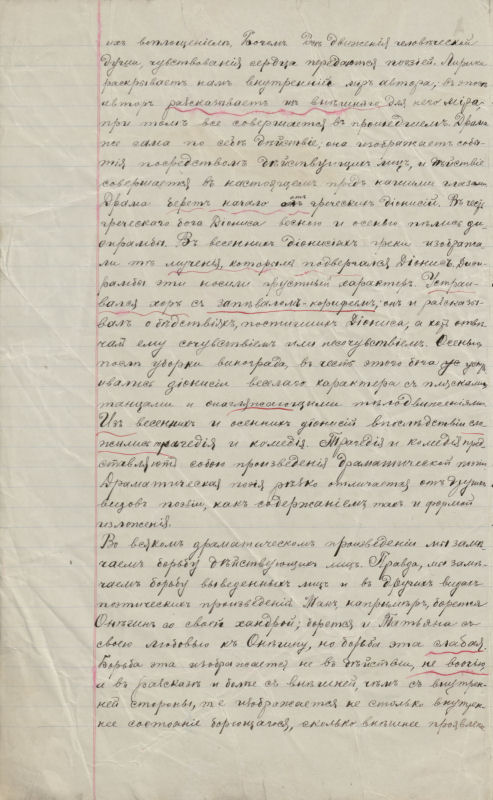 ихъ воплощеніемъ. Потомъ движенія человѣческой
души, чувствованія сердца передаются поэзіей. Лирика
раскрываетъ намъ внутренній міръ автора; въ эпосѣ
авторъ разсказываетъ изъ внѣшняго для него міра,
при томъ все совершается въ прошедшемъ. Драма
же сама по себѣ дѣйствіе, она изображаетъ собы-
тія посредствомъ дѣйствующихъ лицъ, и дѣйствіе
совершается въ настоящемъ предъ нашими глазами.
Драма беретъ начало отъ греческихъ діонисій. Въ честь
греческаго бога Діониса весною и осенью пѣлись ди-
ѳирамбы. Въ весеннихъ діонисіяхъ греки изобража-
ли тѣ мученія, которымъ подвергался Діонисъ. Диѳи-
рамбы эти носили грустный характеръ. Устраи-
вался хоръ съ запѣваломъ-корифеемъ; онъ и разсказы-
валъ о бѣдствіяхъ, постигшихъ Діониса, а хоръ отвѣ-
чалъ ему сочувствіемъ или несочувствіемъ. Осенью,
послѣ уборки винограда, въ честь этого бога устра
ивались діонисіи веселаго характера съ плясками,
танцами и тѣлодвиженіями.
Изъ весеннихъ и осеннихъ діонисій впослѣдствіи сло
жились трагедія и комедія. Трагедія и комедія пред
ставляютъ собою произведенія драматической поэзіи.
Драматическая поэзія рѣзко отличается отъ другихъ
видовъ поэзіи, какъ содержаніемъ такъ и формой
изложенія.
Во всякомъ драматическомъ произведеніи мы замѣ-
чаемъ борьбу дѣйствующихъ лицъ. Правда, мы замѣ-
чаемъ борьбу выведенныхъ лицъ и въ другихъ видахъ
поэтическихъ произведеній. Такъ напримѣръ, борется
Онѣгинъ со своей хандрой; борется и Татьяна съ
своею любовью къ Онѣгину, но борьба эта слабая.
Борьба эта изображается не въ дѣйствіи, не воочію,
а въ разсказѣ и болѣе съ внѣшней, чѣмъ съ внутрен-
ней стороны, т.е изображается не столько внутрен-
нее состояніе борющагося, сколько внѣшнее проявле